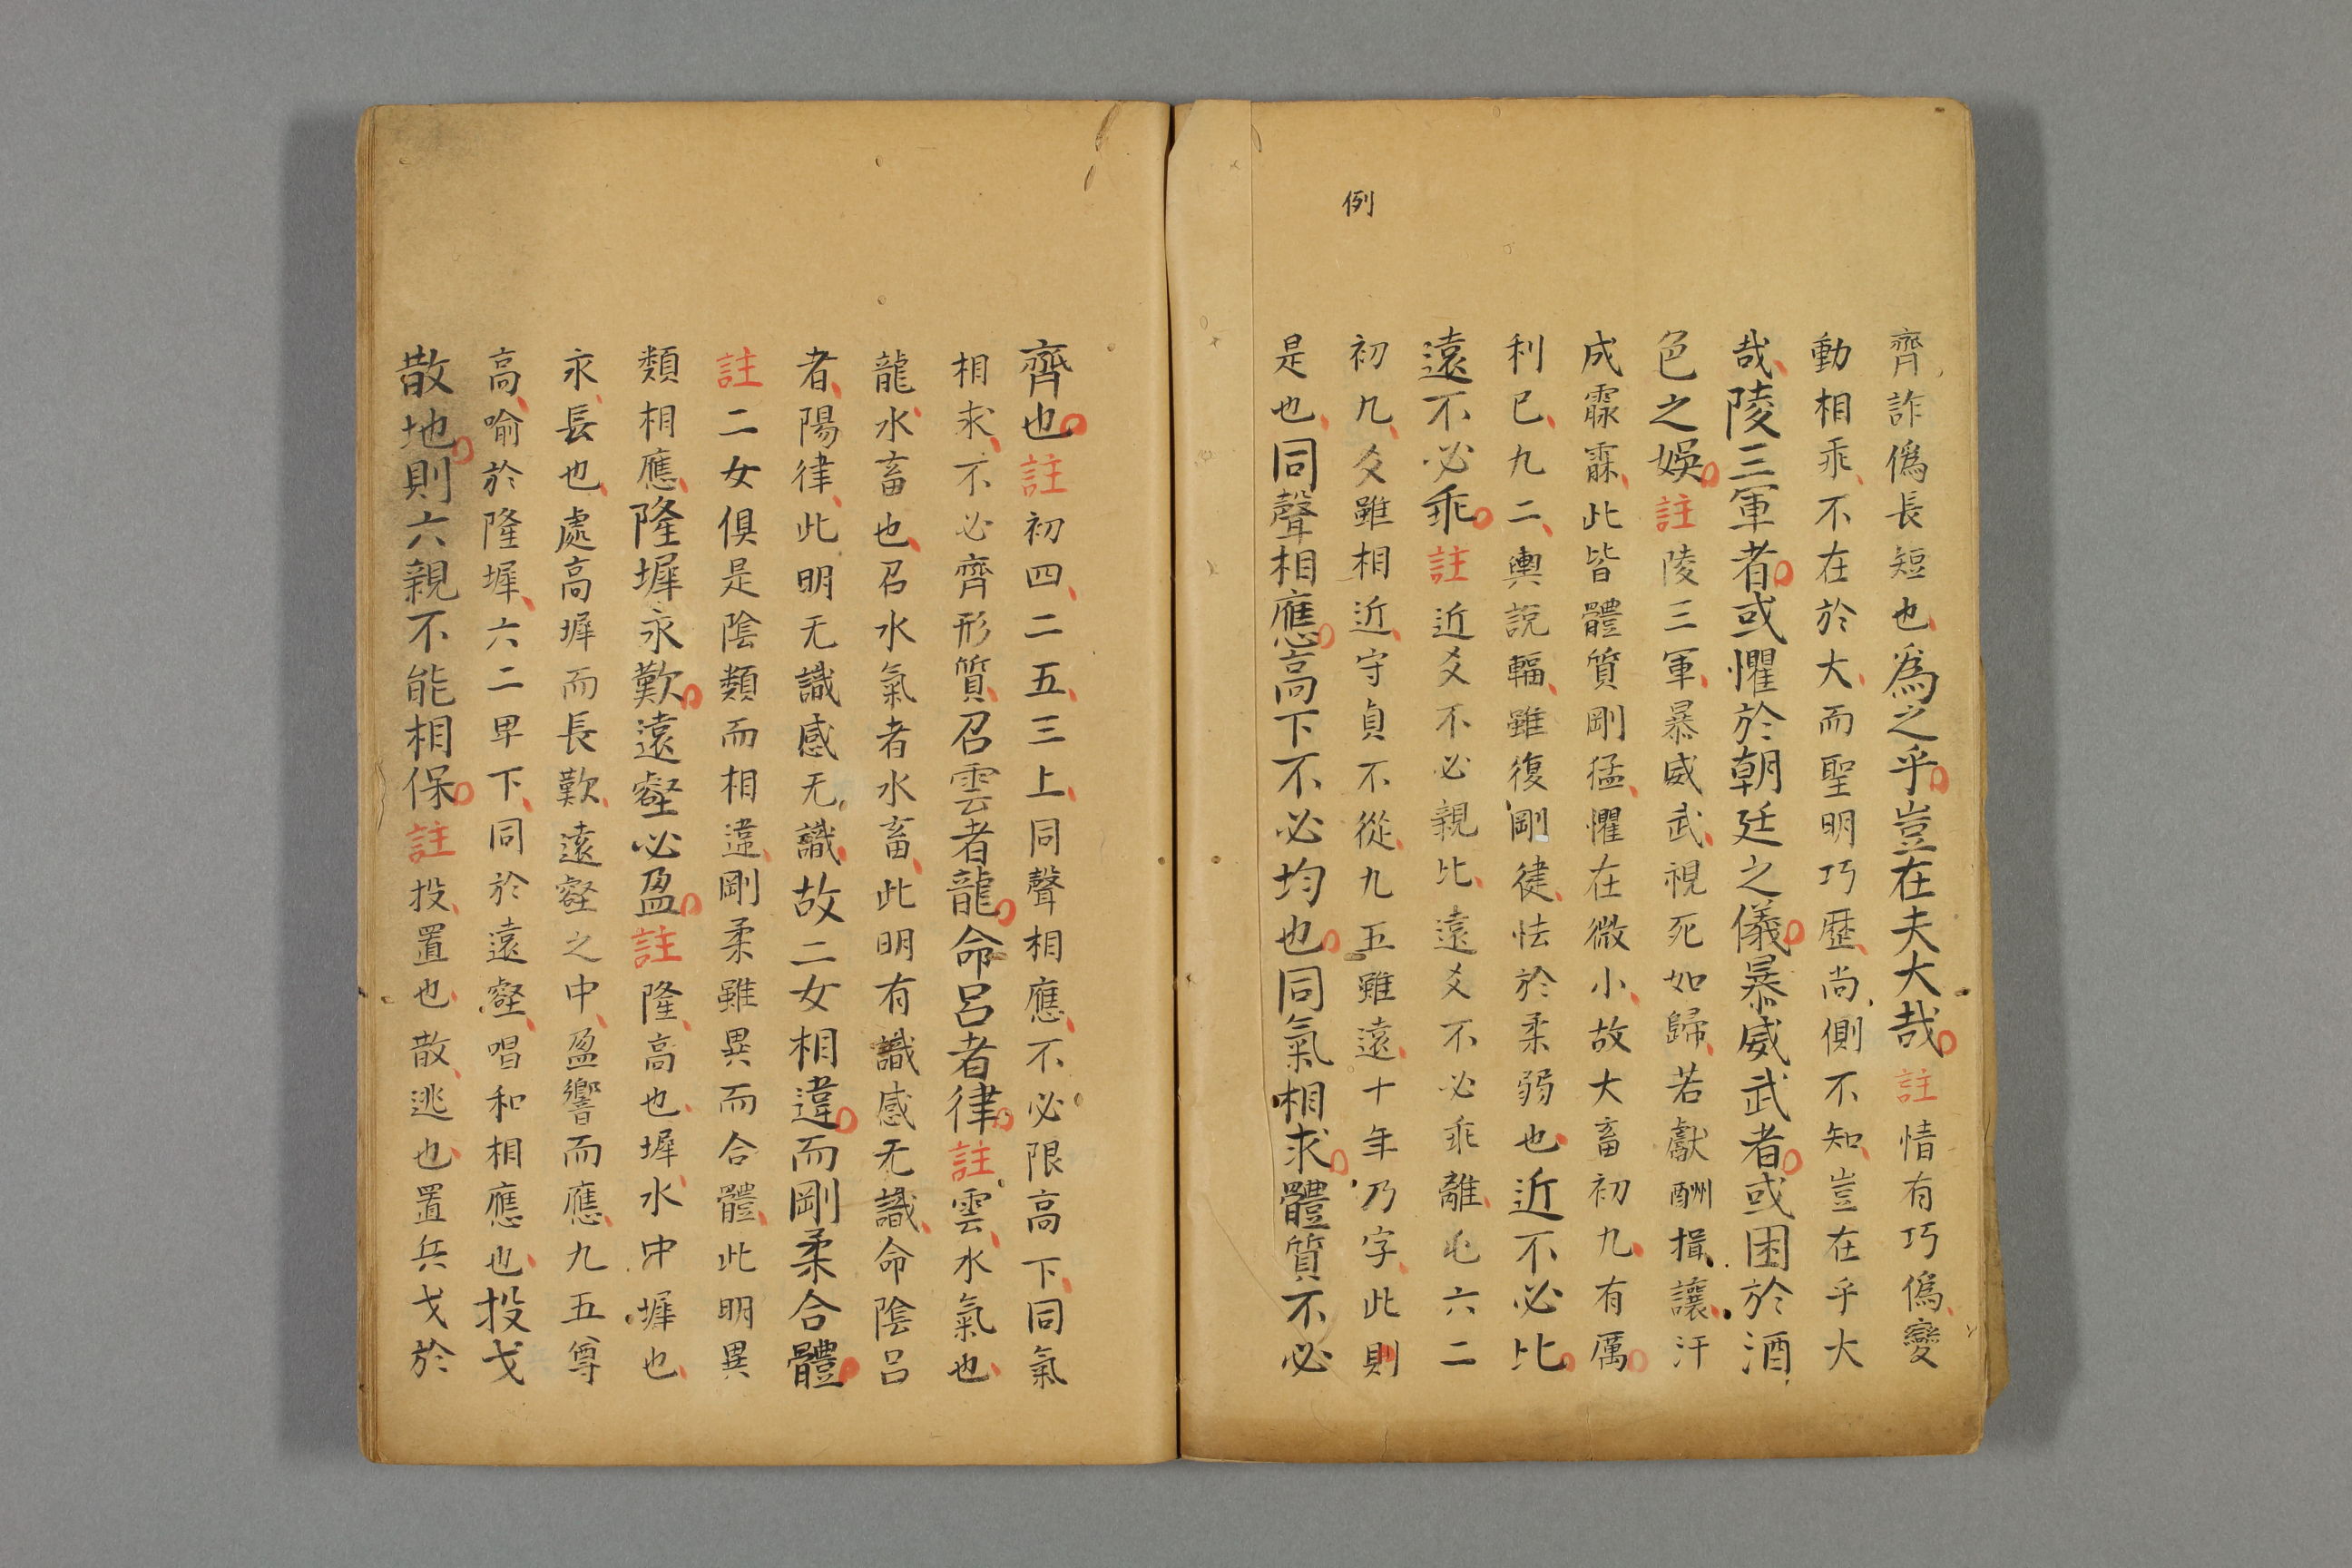 例
齊詐僞長短也為之乎豈在夫大哉註情有巧僞變
動相乖不在於大而聖明巧歷尚側不知豈在乎大
哉陵三軍者或懼於朝廷之儀暴威武者或困於酒
色之娛註陵三軍暴威武視死如歸若獻酬揖讓汗
成霡霂此皆體質剛猛懼在微小故大畜初九有厲
利已九二輿說輻雖復剛健怯於柔弱也近不必比
遠不必乖註近爻不必親比遠爻不必乖離屯六二
初九爻雖相近守貞不從九五雖遠十年乃字此則
是也同聲相應高下不必均也同氣相求體質不必
齊也註初四二五三上同聲相應不必限高下同氣
相求不必齊形質召雲者龍命呂者律註雲水氣也
龍水畜也召水氣者水畜此明有識感无識命陰呂
者陽律此明无識感无識故二女相違而剛柔合體
註二女俱是陰類而相違剛柔雖異而合體此明異
類相應隆墀永歎遠壑必盈註隆高也墀水中墀也
永長也處高墀而長歎遠壑之中盈響而應九五尊
高喻於隆墀六二卑下同於遠壑唱和相應也投戈
散地則六親不能相保註投置也散逃也置兵戈於